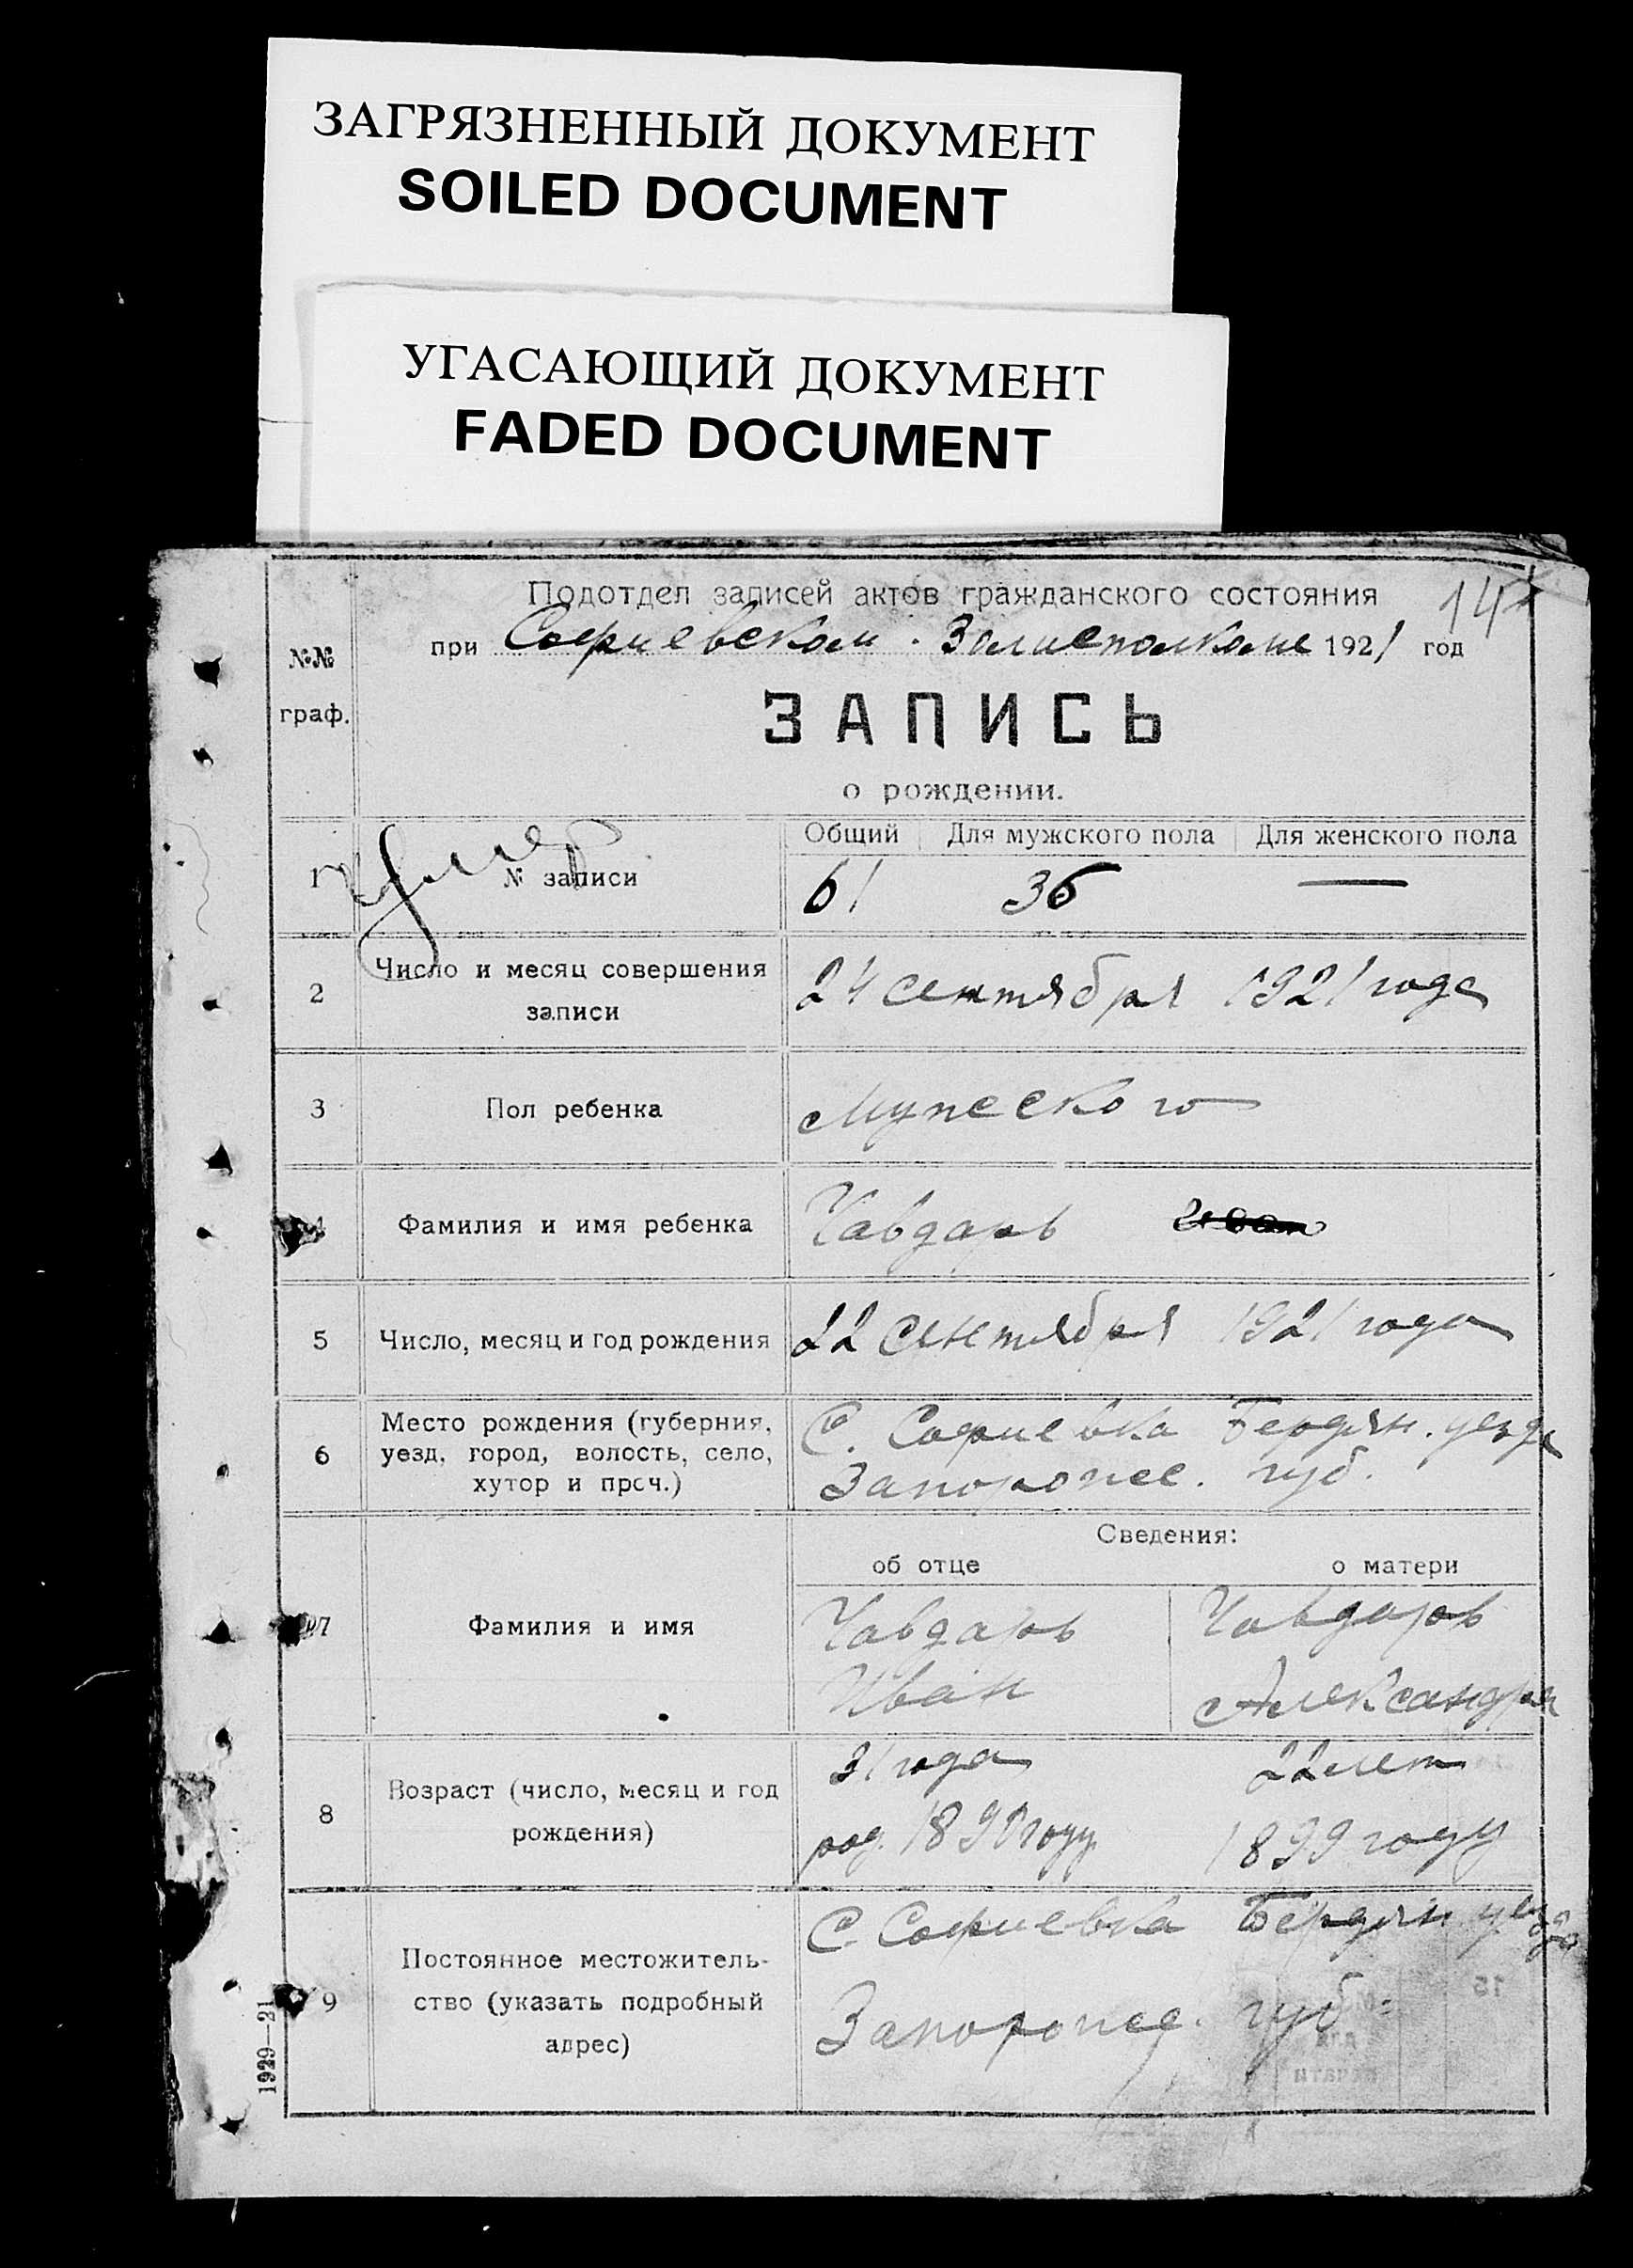 ЗАГРЯЗНЕННЫЙ ДОКУМЕНТ
SOILED DOCUMENT
УГАСАЮЩИЙ ДОКУМЕНТ
FADED DOCUMENT
14
Подотдел записей актов гражданского состояния
при Софиевском 1921 год
№№
граф.
ЗАПИСЬ
о рождении.
Общий Для мужского пола Для женского пола
умер
1 № записи 61 36 —
2 Число и месяц совершения
записи
24 сентября 1921 года
3 Пол ребенка Мужеского
4 Фамилия и имя ребенка Чавдарь Иван
5 Число, месяц и год рождения 22 сентября 1921 года
6 Место рождения (губерния,
уезд, город, волость, село,
хутор и проч.)
С. Софиевка Бердян. уезда
Запорожс. губ.
Сведения:
об отце о матери
7 Фамилия и имя Чавдарь Чавдарь
Иван Александра
8 Возраст (число, месяц и год
рождения)
31 года 22 лет
род. 1890 году 1899 году
9 Постоянное местожитель-
ство (указать подробный
адрес)
С. Софиевка Бердян уезда
Запорожс. губ.
1929—21
15
для
печати